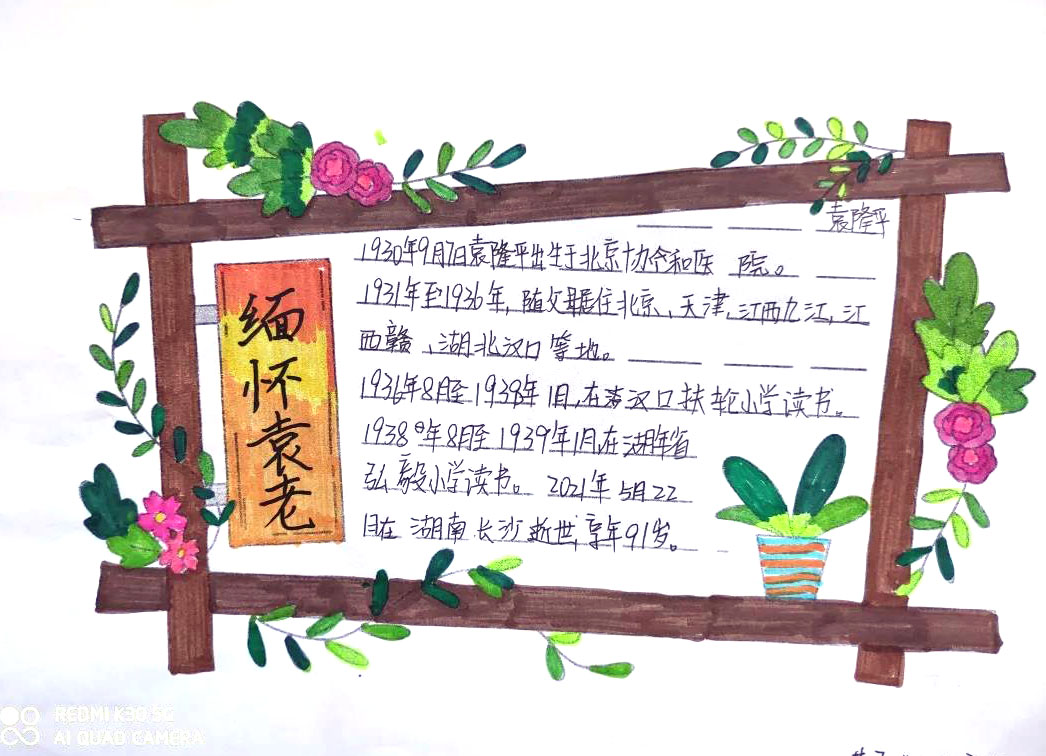 袁隆平
1930年9月7日袁隆平出生于北京协和医 院。
1931年至1936年,随父母居住北京、天津、江西九江,江
西赣、湖北汉口等地。
1936年8月至1938年1月,在汉口扶轮小学读书。
1938年8月至1939年1月在湖南省
弘毅小学读书。 2021年5月22
日在 湖南 长沙 逝世,享年91岁。
缅怀袁老
REDMI K30 5G
AI QUAD CAMERA